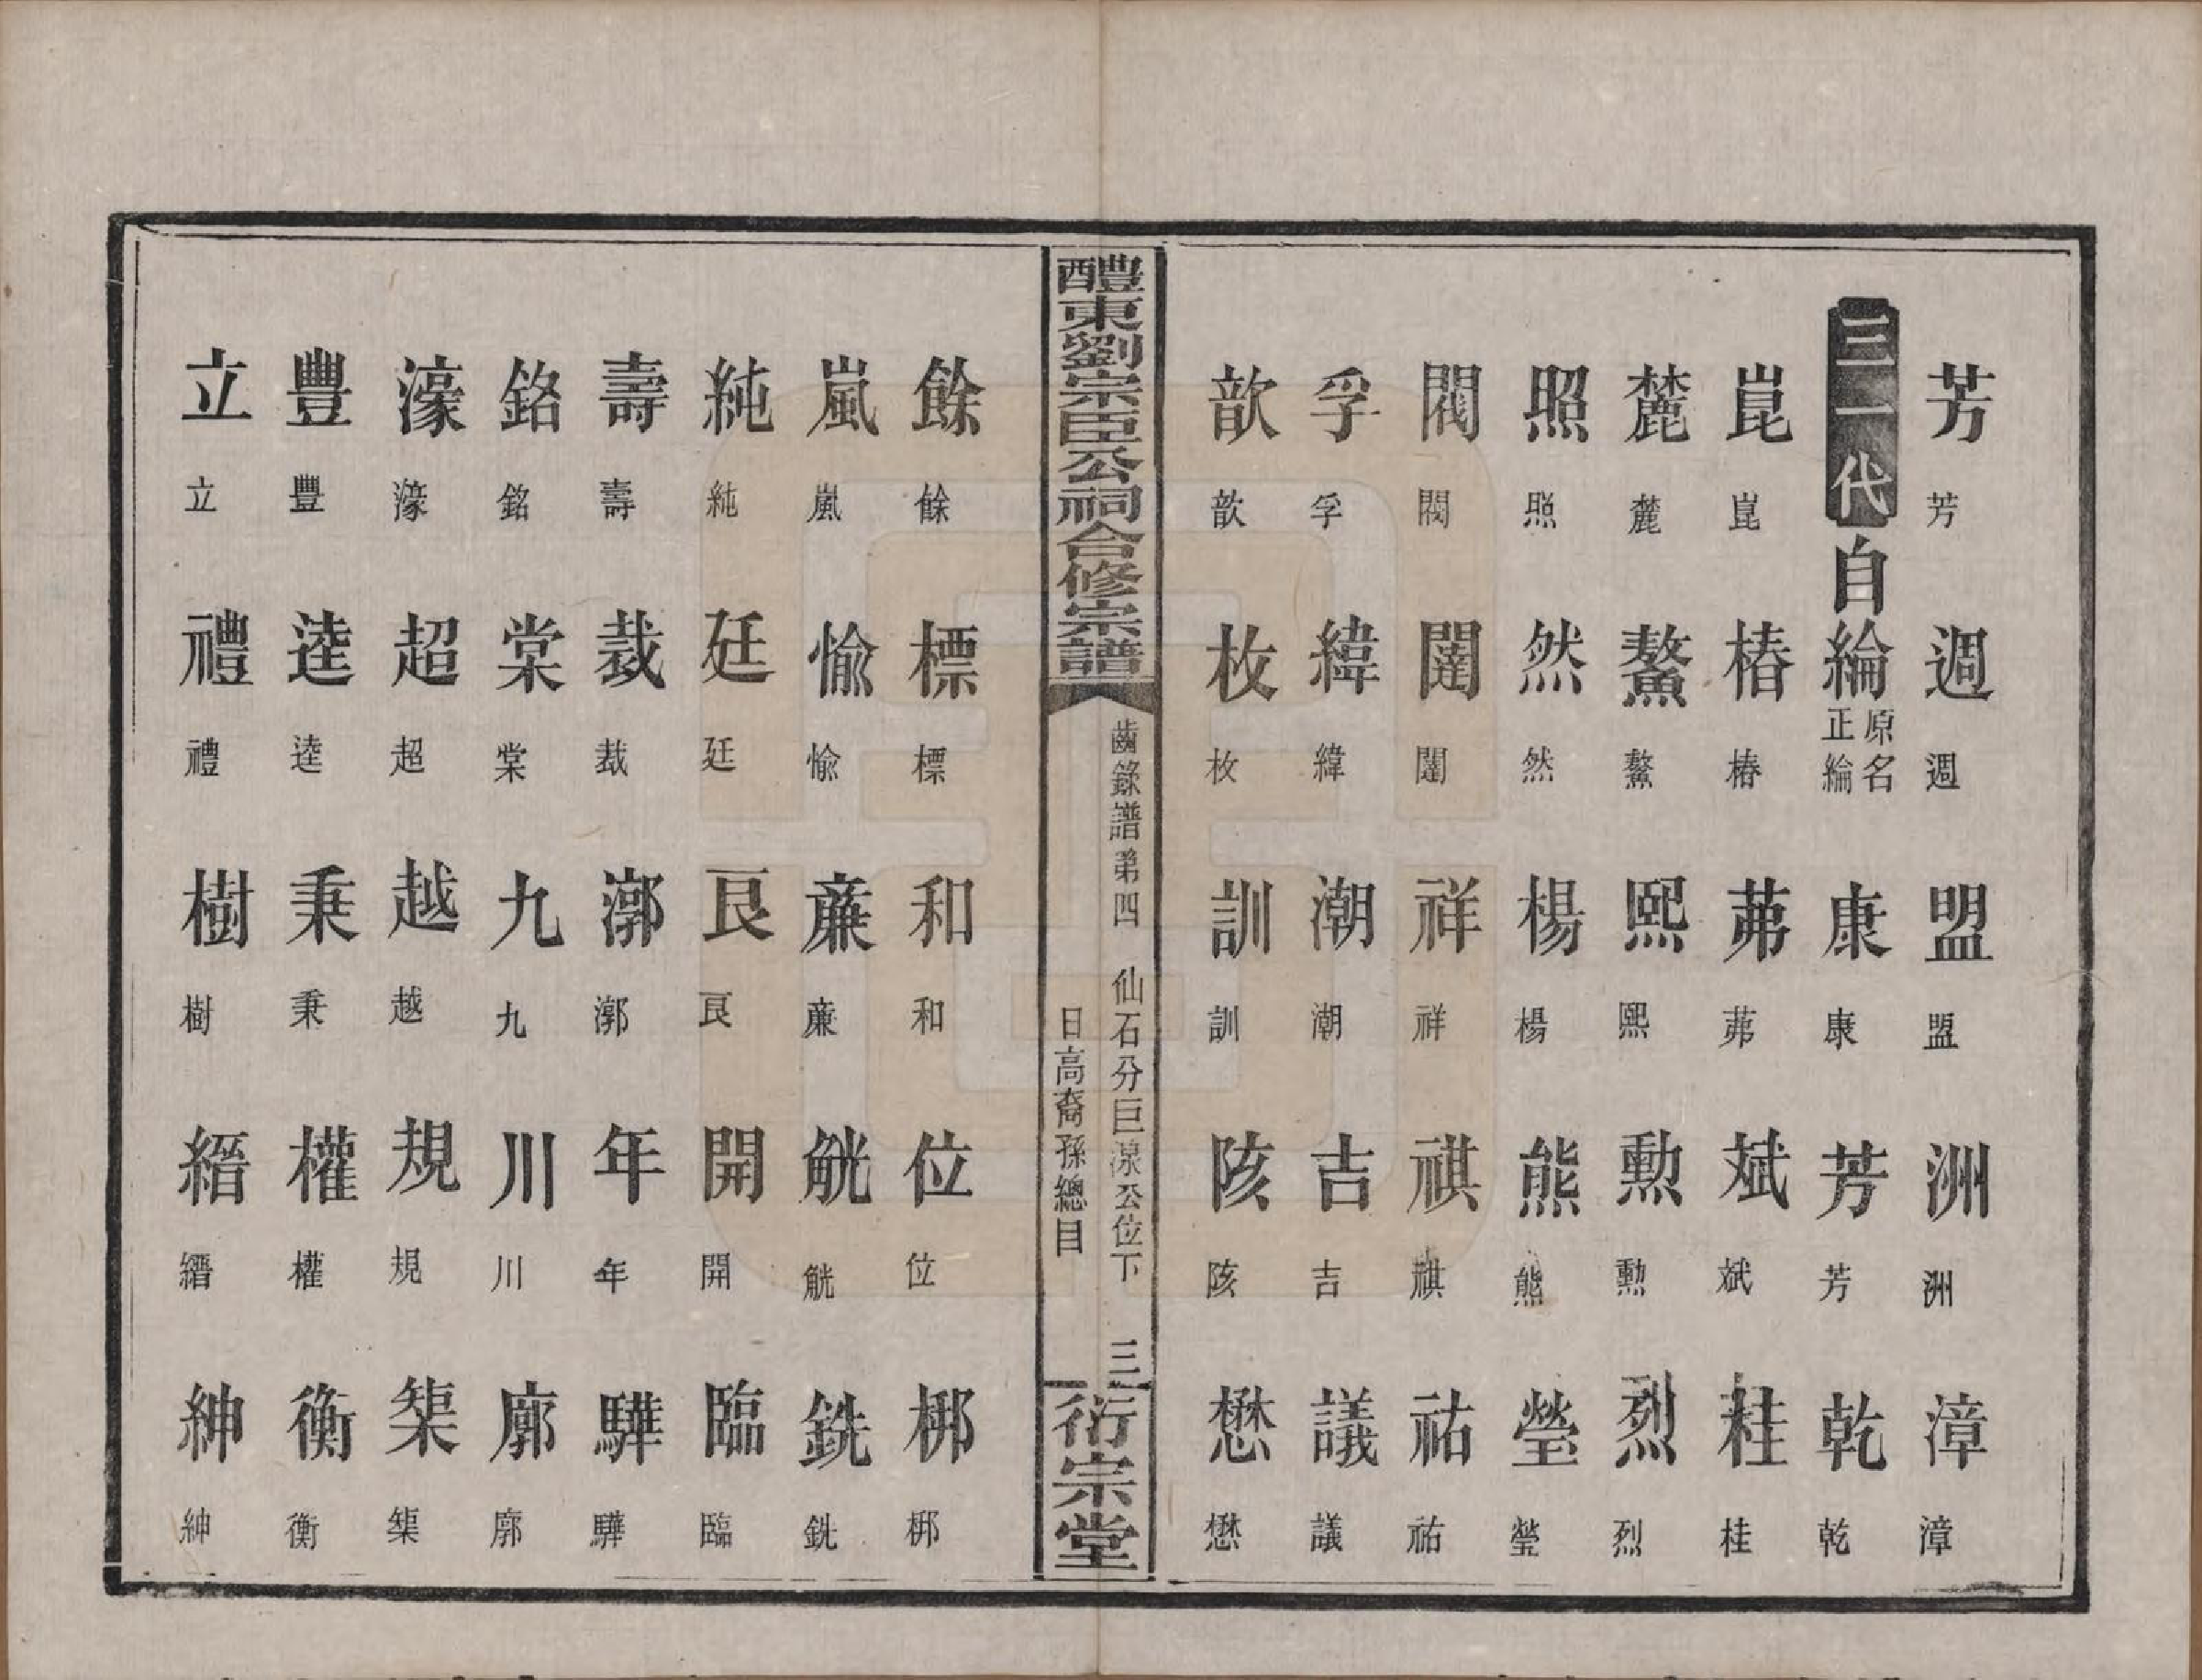 芳芳 週週 盟盟 洲洲 漳漳
三一代 自綸 原名正綸 康康 芳芳 乾乾
崑崑 椿椿 茀茀 斌斌 桂桂
麓麓 鰲鰲 熙熙 勲勲 烈烈
照照 然然 楊楊 熊熊 瑩瑩
閥閥 闥闥 祥祥 祺祺 祐祐
孚孚 緯緯 潮潮 吉吉 議議
歆歆 枚枚 訓訓 陔陔 懋懋
醴東劉宗臣公祠合修宗譜
齒錄譜第四 仙石分巨湶公位下
日高裔孫總目
三
衍宗堂
餘餘 標標 和和 位位 梆梆
嵐嵐 愉愉 薕薕 觥觥 銑銑
純純 廷廷 艮艮 開開 臨臨
壽壽 裁裁 漷漷 年年 驊驊
銘銘 棠棠 九九 川川 廓廓
濠濠 超超 越越 規規 榘榘
豐豐 逵逵 秉秉 權權 衡衡
立立 禮禮 樹樹 縉縉 紳紳